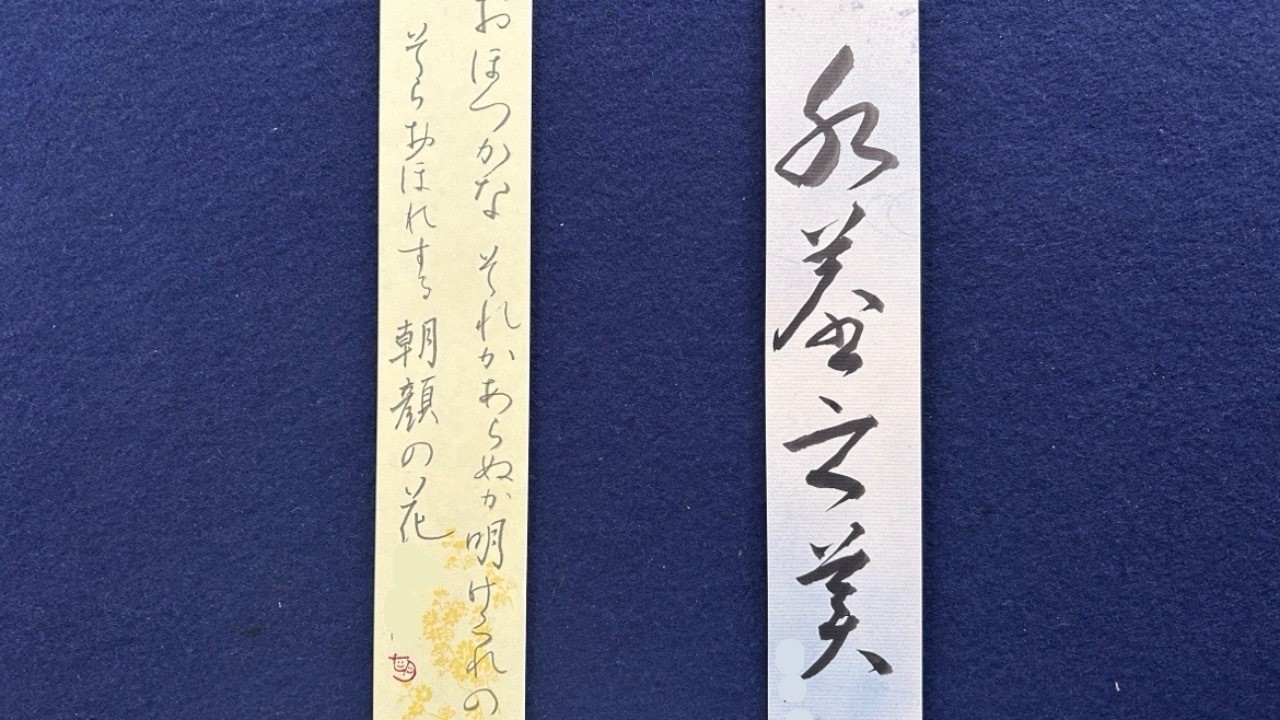 水羞之美
おほつかな それかあらぬか明けくれの
そらおほれする 朝顔の花